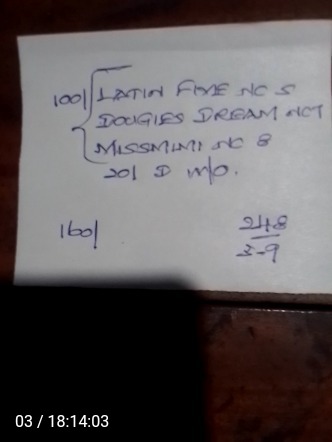 100/ LATIN FIVE NC 5
DOUGIES DREAM NC7
MISSMIMI NC 8
20/ D W/O.
160/
248
3-9
03 / 18:14:03